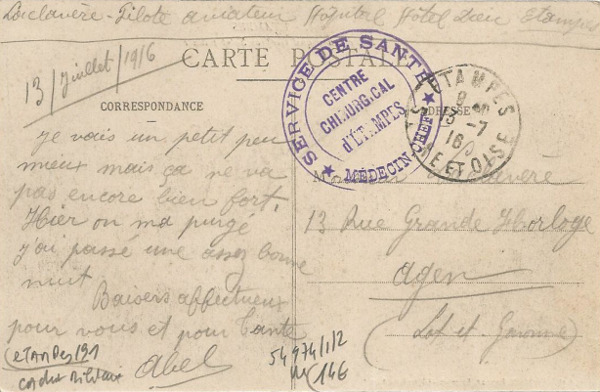 Laclavère - Pilote aviateur Hôpital Hôtel Dieu Etampes
13/Juillet/1916
CARTE POSTALE
CORRESPONDANCE
ADRESSE
SERVICE DE SANTÉ
CENTRE
CHIRURGICAL
d'ETAMPES
MÉDECIN-CHEF
ETAMPES
13 -7
16
SEINE ET OISE
je vais un petit peu
mieux mais ça ne va
pas encore bien fort.
Hier on m'a purgé
j'ai passé une assez bonne
nuit
Baisers affectueux
pour vous et pour Tante
Abel
Monsieur Laclavère
13 Rue Grande Horloge
Agen
(Lot et Garonne)
ETAMPES 191
54974/1/2
146